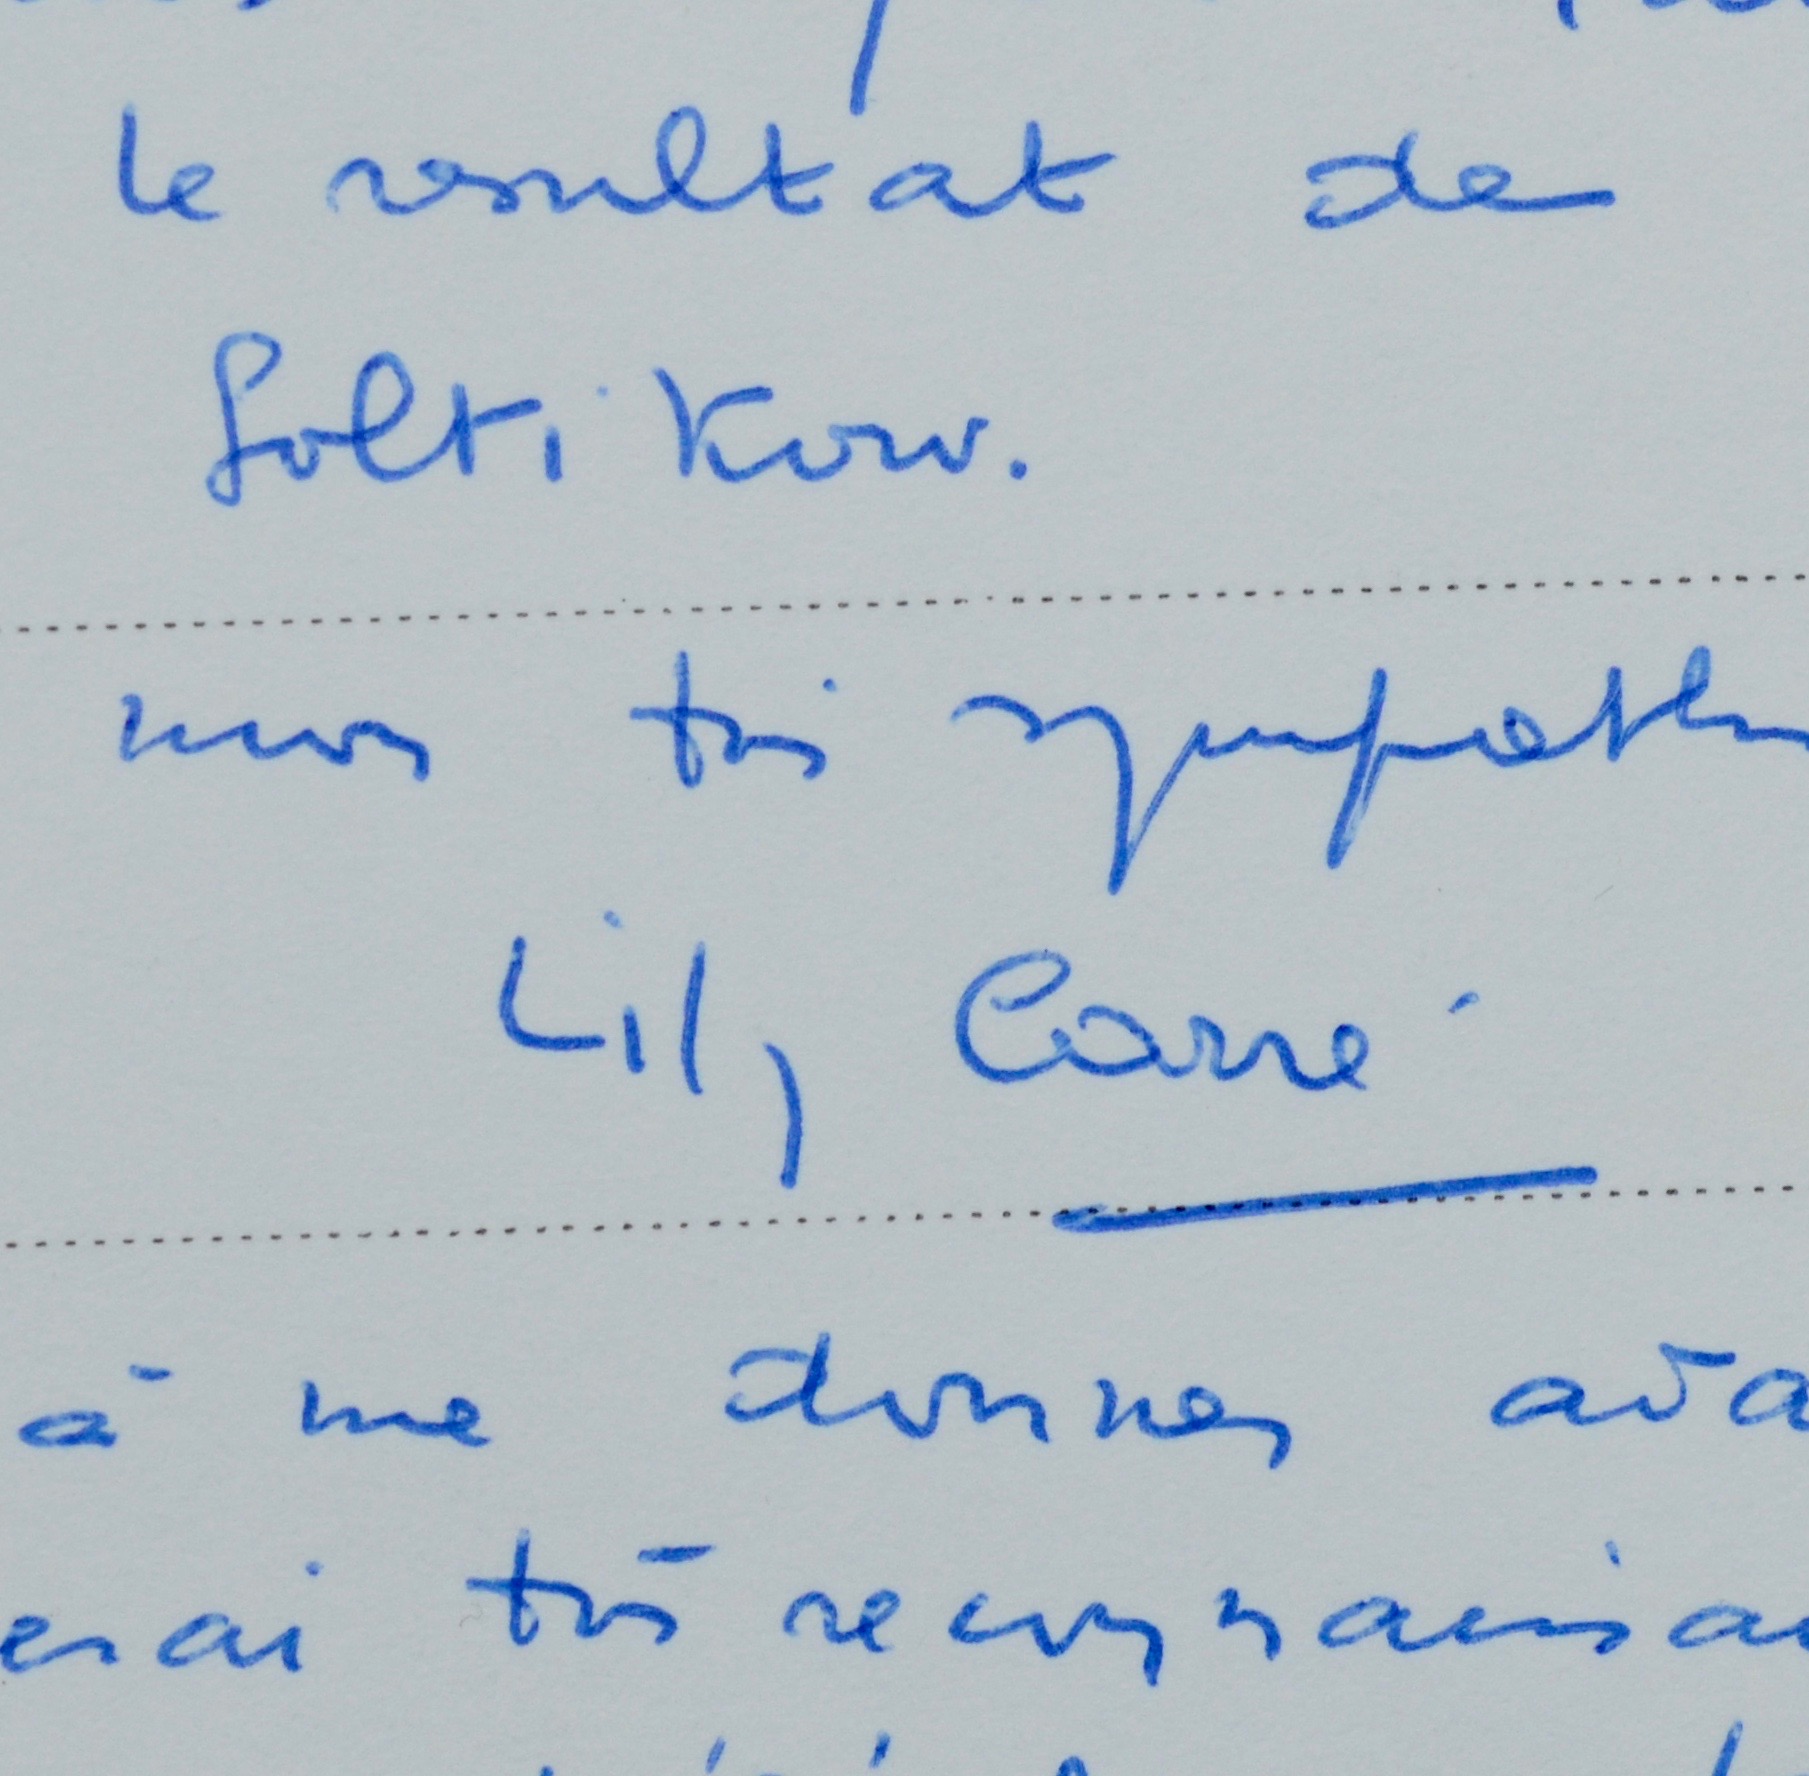 le resultat de
Soltikow.
mon très sympath
Lily Carré
à me donner ava
erai très reconnaissa